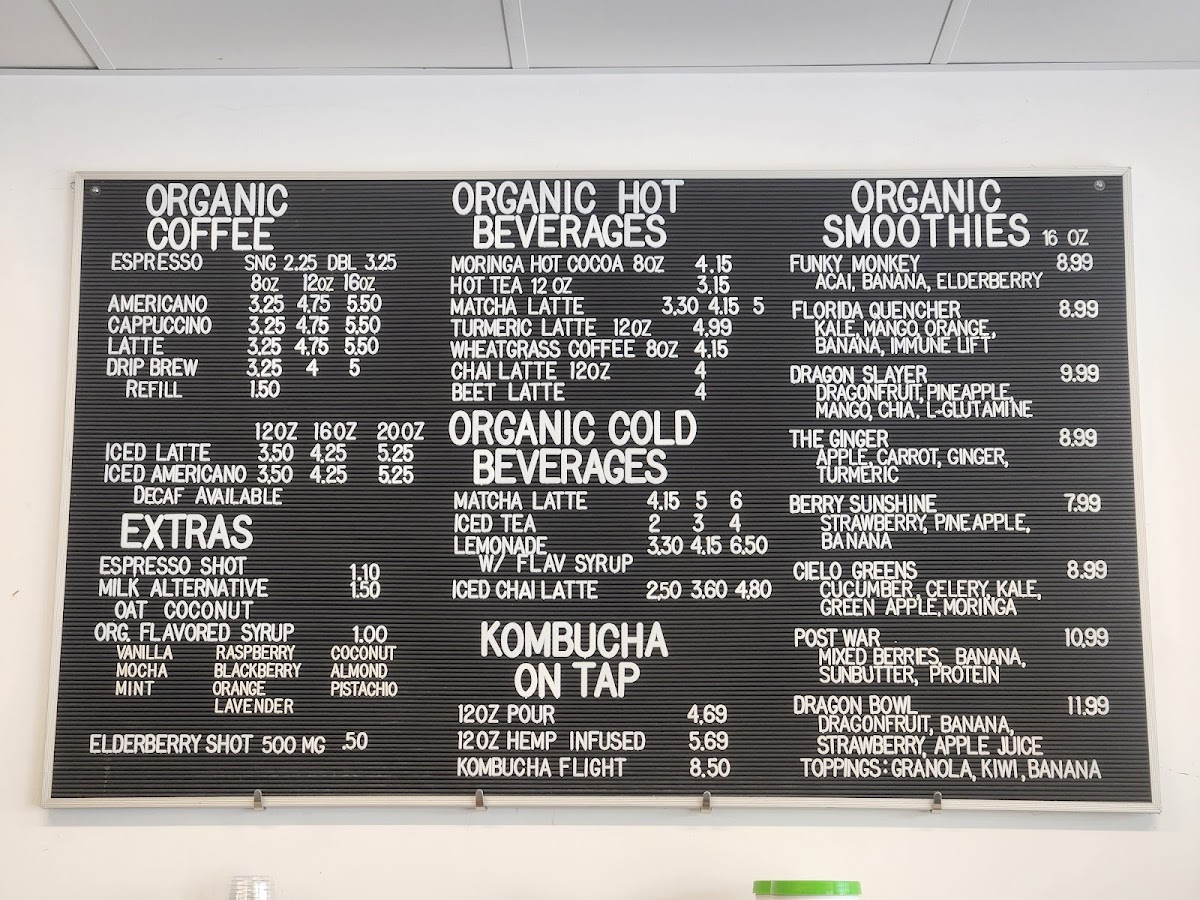 ORGANIC
COFFEE
ESPRESSO SNG 2.25 DBL 3.25
8OZ 12OZ 16OZ
AMERICANO 3.25 4.75 5.50
CAPPUCCINO 3.25 4.75 5.50
LATTE 3.25 4.75 5.50
DRIP BREW 3.25 4 5
REFILL 1.50
12OZ 16OZ 20OZ
ICED LATTE 3.50 4.25 5.25
ICED AMERICANO 3.50 4.25 5.25
DECAF AVAILABLE
EXTRAS
ESPRESSO SHOT 1.10
MILK ALTERNATIVE 1.50
OAT COCONUT
ORG. FLAVORED SYRUP 1.00
VANILLA RASPBERRY COCONUT
MOCHA BLACKBERRY ALMOND
MINT ORANGE PISTACHIO
LAVENDER
ELDERBERRY SHOT 500 MG .50
ORGANIC HOT
BEVERAGES
MORINGA HOT COCOA 8OZ 4.15
HOT TEA 12 OZ 3.15
MATCHA LATTE 3.30 4.15 5
TURMERIC LATTE 12OZ 4.99
WHEATGRASS COFFEE 8OZ 4.15
CHAI LATTE 12OZ 4
BEET LATTE 4
ORGANIC COLD
BEVERAGES
MATCHA LATTE 4.15 5 6
ICED TEA 2 3 4
LEMONADE 3.30 4.15 6.50
W/ FLAV SYRUP
ICED CHAI LATTE 2.50 3.60 4.80
KOMBUCHA
ON TAP
12OZ POUR 4.69
12OZ HEMP INFUSED 5.69
KOMBUCHA FLIGHT 8.50
ORGANIC
SMOOTHIES 16 OZ
FUNKY MONKEY 8.99
ACAI, BANANA, ELDERBERRY
FLORIDA QUENCHER 8.99
KALE, MANGO, ORANGE,
BANANA, IMMUNE LIFT
DRAGON SLAYER 9.99
DRAGONFRUIT, PINEAPPLE,
MANGO, CHIA. L-GLUTAMINE
THE GINGER 8.99
APPLE, CARROT, GINGER,
TURMERIC
BERRY SUNSHINE 7.99
STRAWBERRY, PINEAPPLE,
BANANA
CIELO GREENS 8.99
CUCUMBER, CELERY, KALE,
GREEN APPLE, MORINGA
POST WAR 10.99
MIXED BERRIES, BANANA,
SUNBUTTER, PROTEIN
DRAGON BOWL 11.99
DRAGONFRUIT, BANANA,
STRAWBERRY, APPLE JUICE
TOPPINGS: GRANOLA, KIWI, BANANA